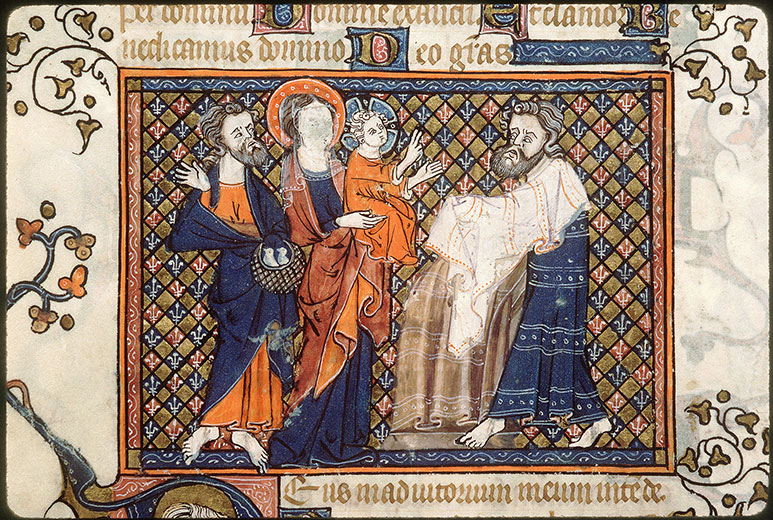 per dominū Domine exaudi Et clamor Be
nedicamus domino Deo gr̄as
DEus in adiutorium meum intēde.